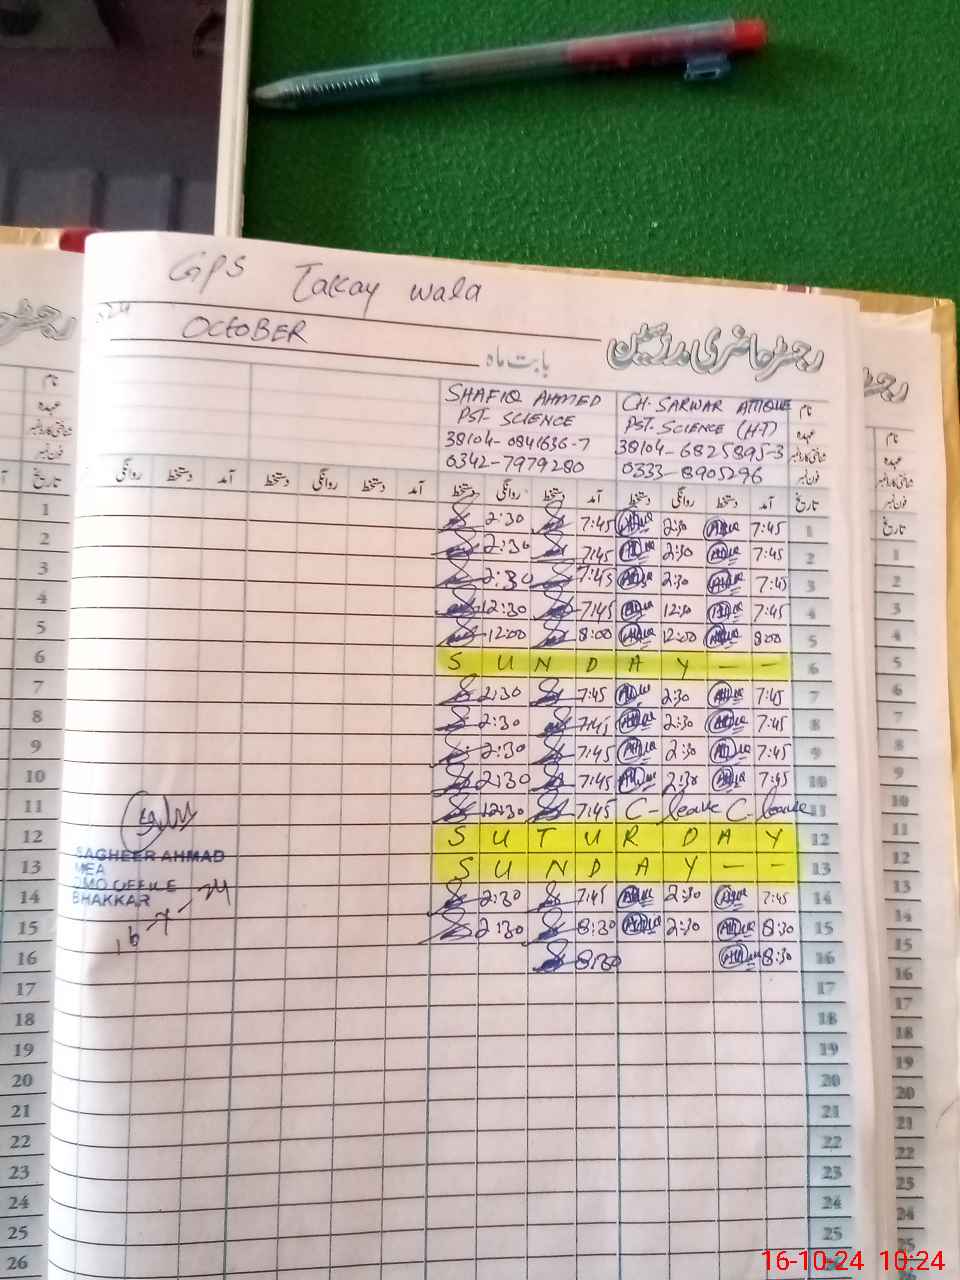 GPS Takay wala
OCTOBER
بابت ماہ
رجسٹر حاضری مدرسین
SHAFIQ AHMED
PST. SCIENCE
38104-0841636-7
0342-7979280
CH. SARWAR ATTIQUE
PST. SCIENCE (H.T)
38104-6825895-3
0333-8905296
نام
عہدہ
شناختی کارڈ نمبر
فون نمبر
تاریخ آمد دستخط روانگی دستخط آمد دستخط روانگی دستخط آمد دستخط روانگی دستخط آمد دستخط روانگی
1 2:30 7:45 2:30 7:45 1
2 2:30 7:45 2:30 7:45 2
3 2:30 7:45 2:30 7:45 3
4 12:30 7:45 12:30 7:45 4
5 12:00 8:00 12:00 8:00 5
6 SUNDAY - - 6
7 2:30 7:45 2:30 7:45 7
8 2:30 7:45 2:30 7:45 8
9 2:30 7:45 2:30 7:45 9
10 2:30 7:45 2:30 7:45 10
11 12:30 7:45 C-leave C-leave 11
12 SUTURDAY 12
13 SUNDAY - - 13
14 2:30 7:45 2:30 7:45 14
15 2:30 8:30 2:30 8:30 15
16 8:30 8:30 16
17 17
18 18
19 19
20 20
21 21
22 22
23 23
24 24
25 25
26
SAGHEER AHMAD
MEA
DMO OFFICE
BHAKKAR
16-10-24 10:24